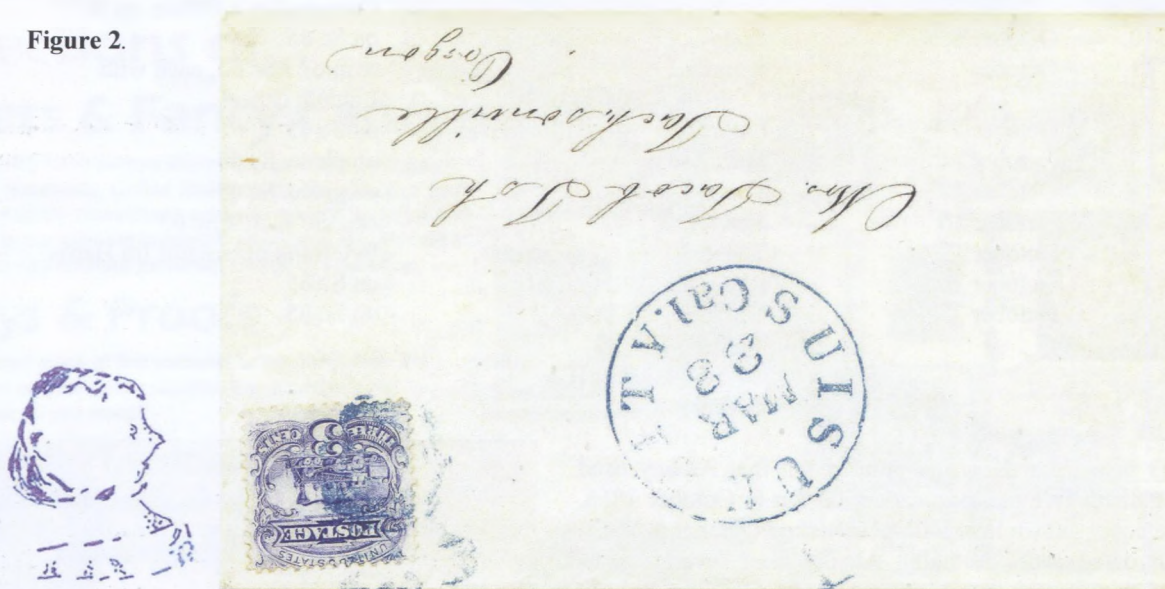 Figure 2.
Mr. Jacob Ish
Jacksonville
Oregon
SUISUN CITY Cal.
MAR
UNITED STATES
POSTAGE
THREE 3 CENTS